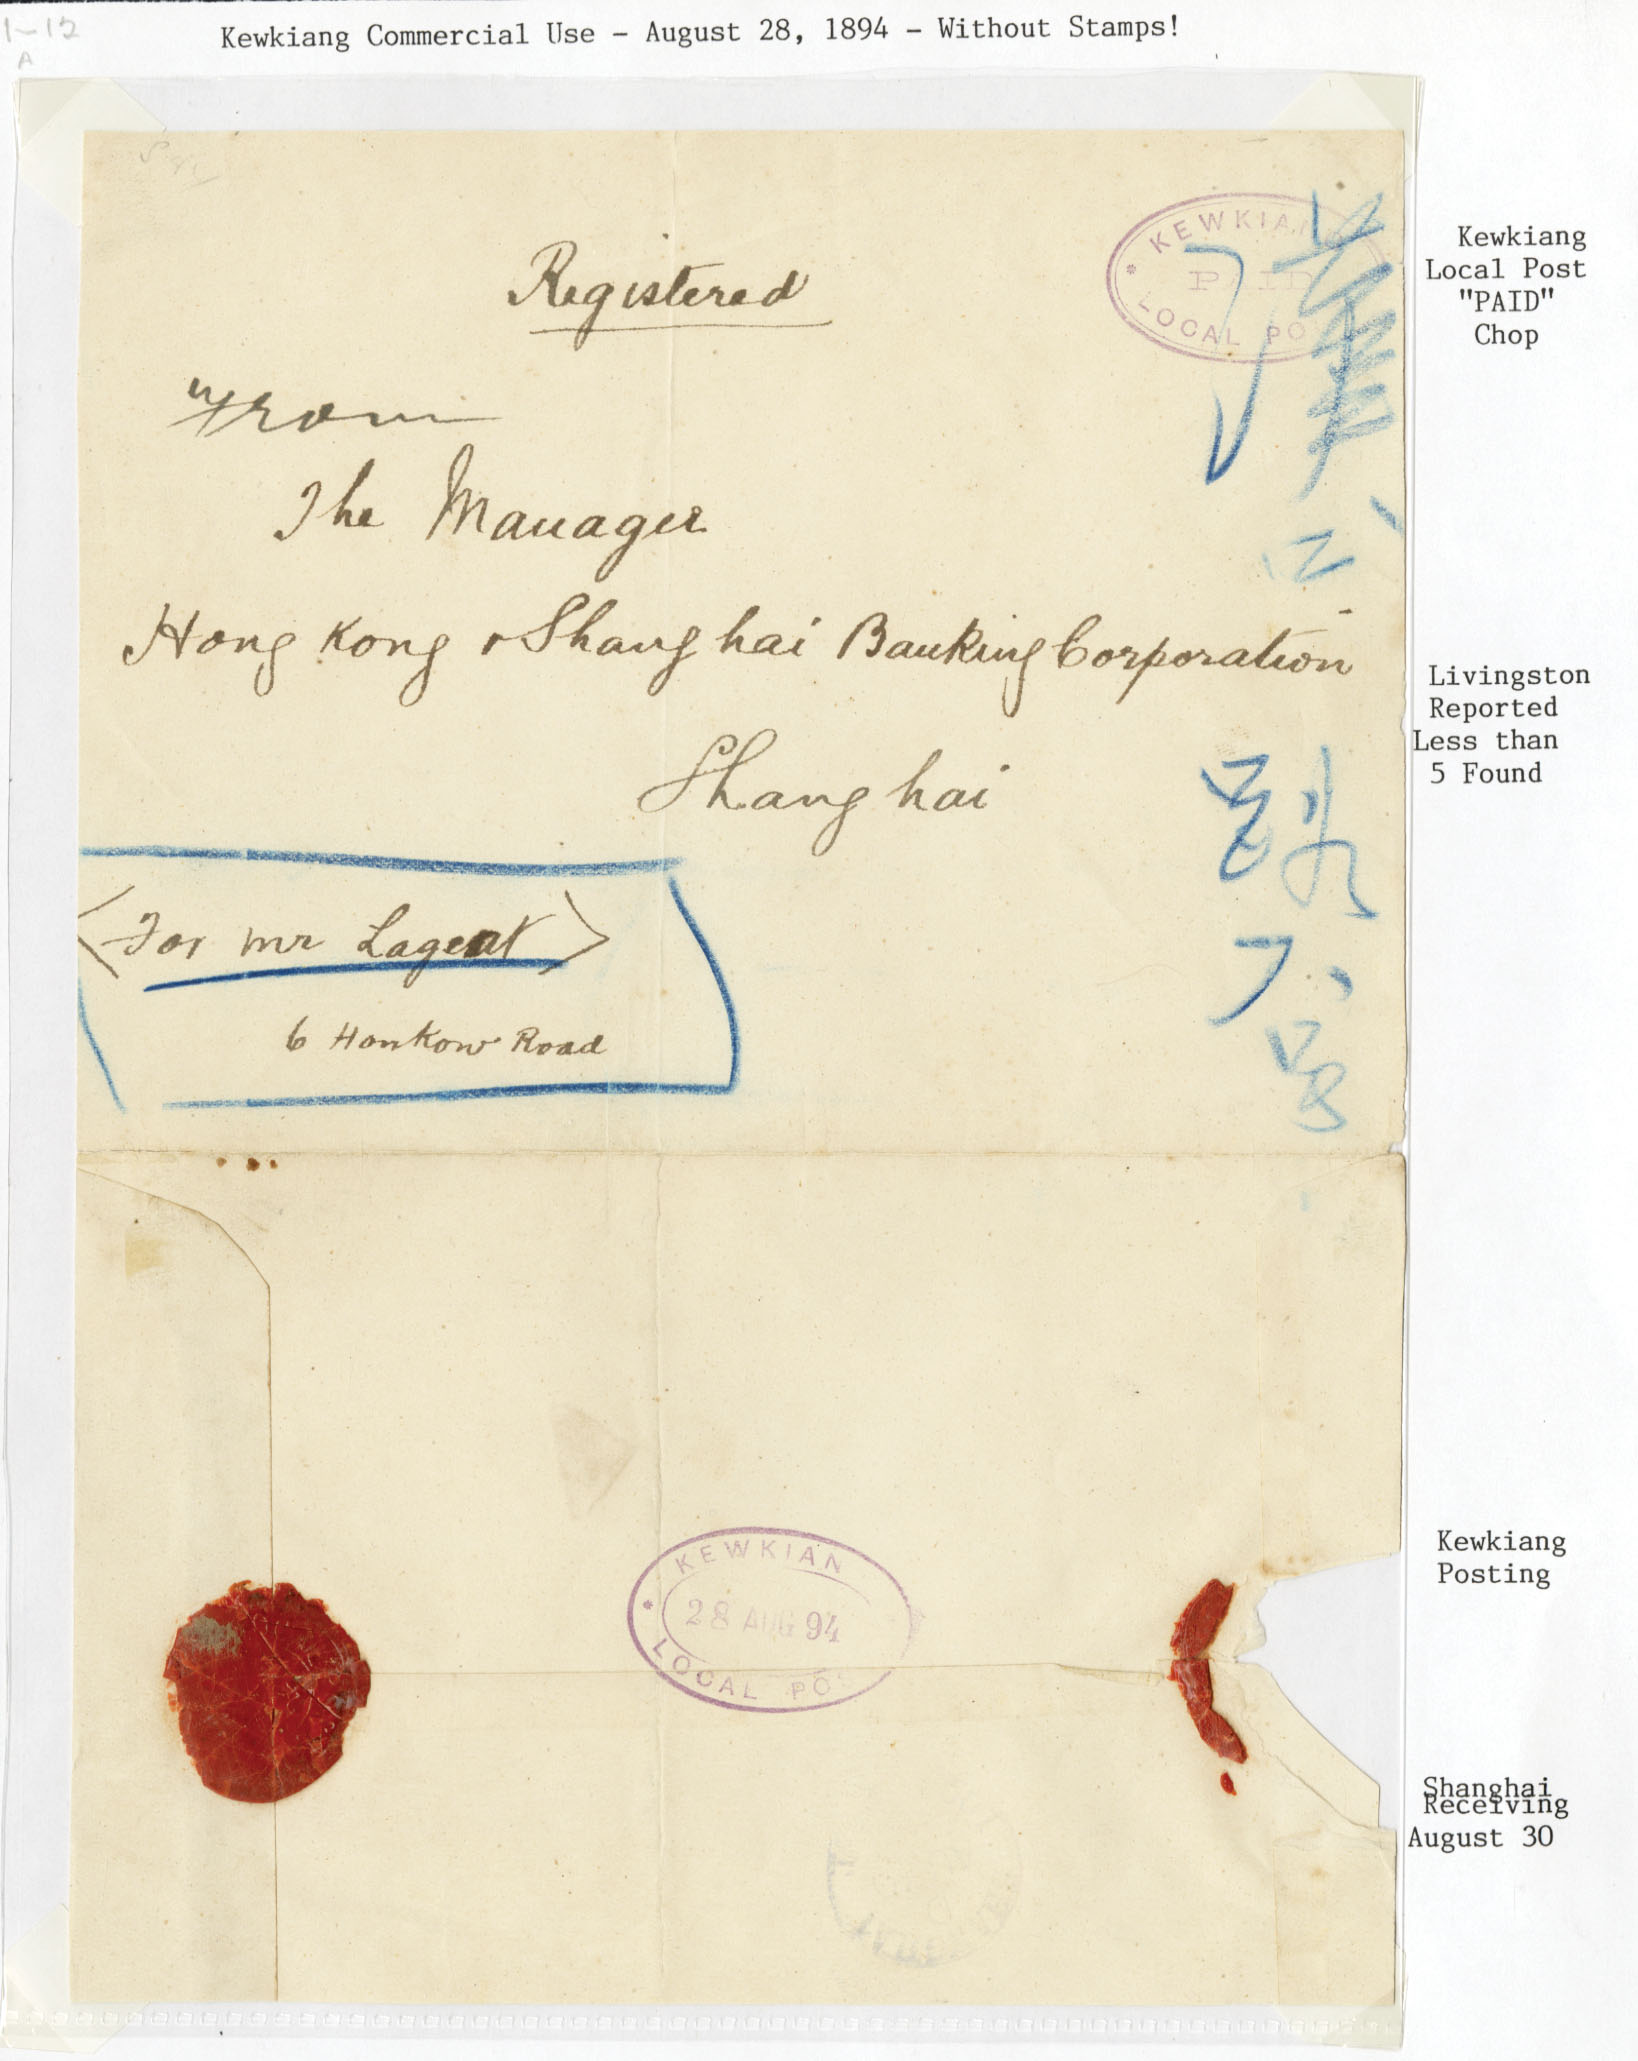 Kewkiang Commercial Use - August 28, 1894 - Without Stamps!
1-12
A
KEWKIAN
PAID
LOCAL PO
Kewkiang
Local Post
"PAID"
Chop
Registered
From
The Manager
Hong Kong & Shanghai Banking Corporation
Shanghai
Livingston
Reported
Less than
5 Found
For Mr Lagent
6 Hankow Road
KEWKIAN
28 AUG 94
LOCAL PO
Kewkiang
Posting
Shanghai
Receiving
August 30